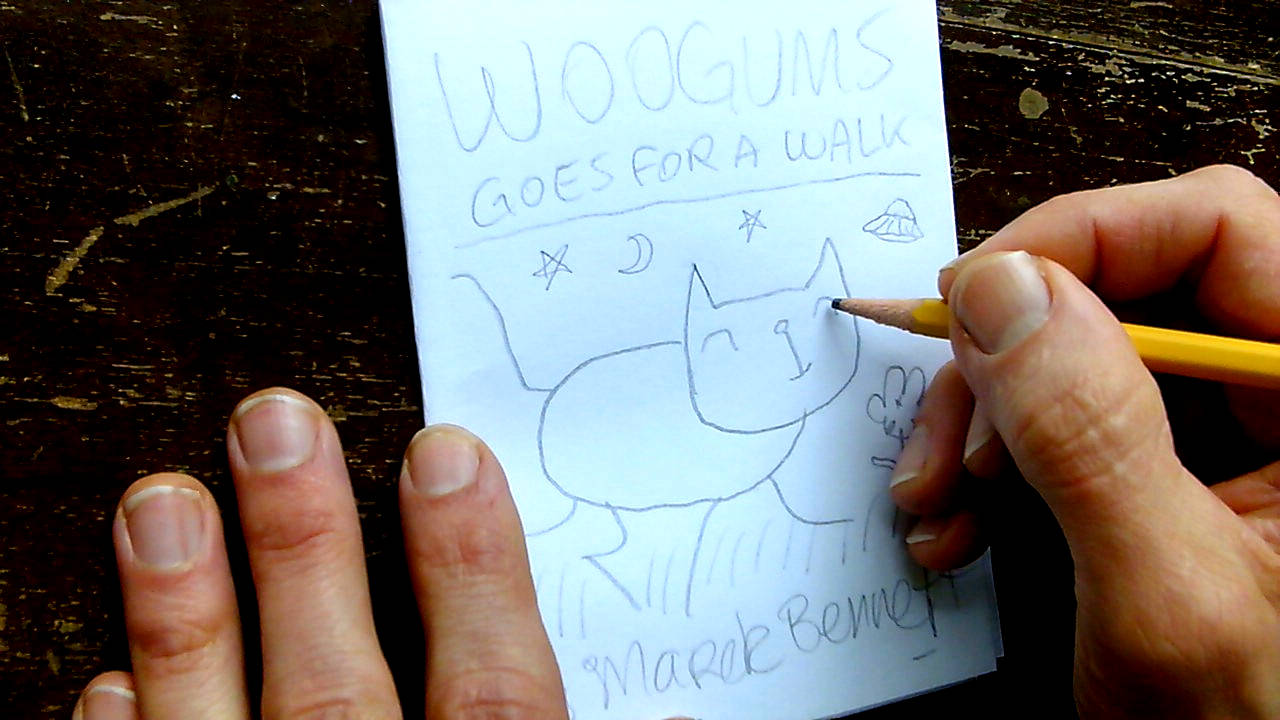 WOOGUMS
GOES FOR A WALK
Marek Bennett